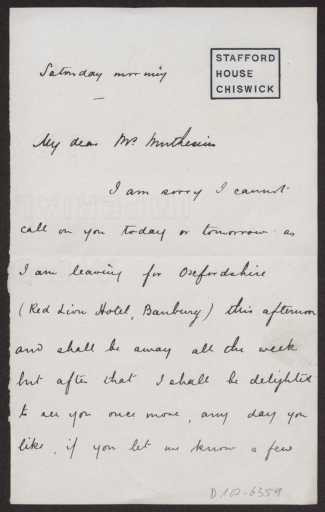 Saturday morning
STAFFORD
HOUSE
CHISWICK
My dear Mr. Muthesius
I am sorry I cannot
call on you today or tomorrow as
I am leaving for Oxfordshire
(Red Lion Hotel, Banbury) this afternoon
and shall be away all the week
but after that I shall be delighted
to see you once more, any day you
like, if you let me know a few
D 102-6359